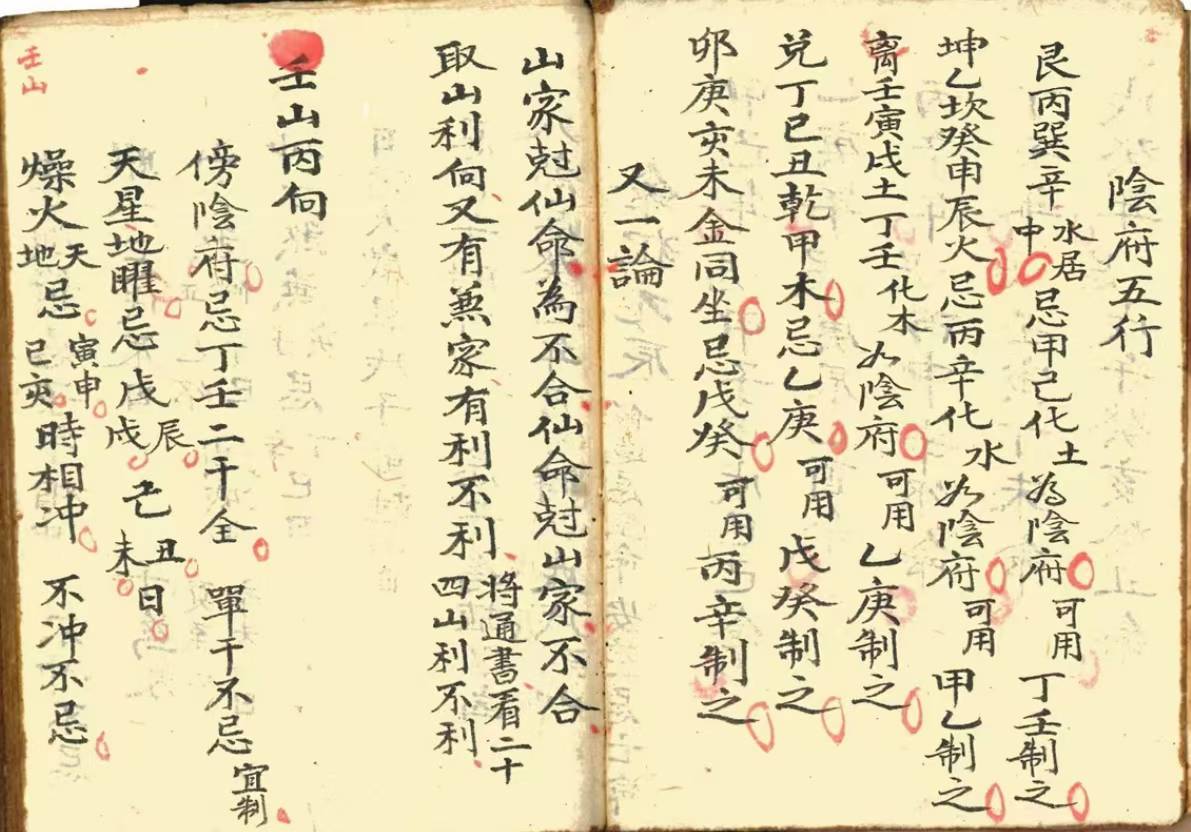 陰府五行
艮丙巽辛水居中忌甲己化土為陰府可用丁壬制之
坤乙坎癸申辰火忌丙辛化水为陰府可用甲乙制之
离壬寅戌土丁壬化木为陰府可用乙庚制之
兌丁巳丑乾甲木忌乙庚可用戊癸制之
卯庚亥未金同坐忌戊癸可用丙辛制之
又一論
山家尅仙命為不合仙命尅山家不合
取山利向又有兼家有利不利將通書看二十四山利不利
壬山丙向
傍陰府忌丁壬二干全單干不忌宜制
天星地曜忌戊辰戊戌己丑未日
燥火天地忌寅申巳亥時相冲不冲不忌
壬山